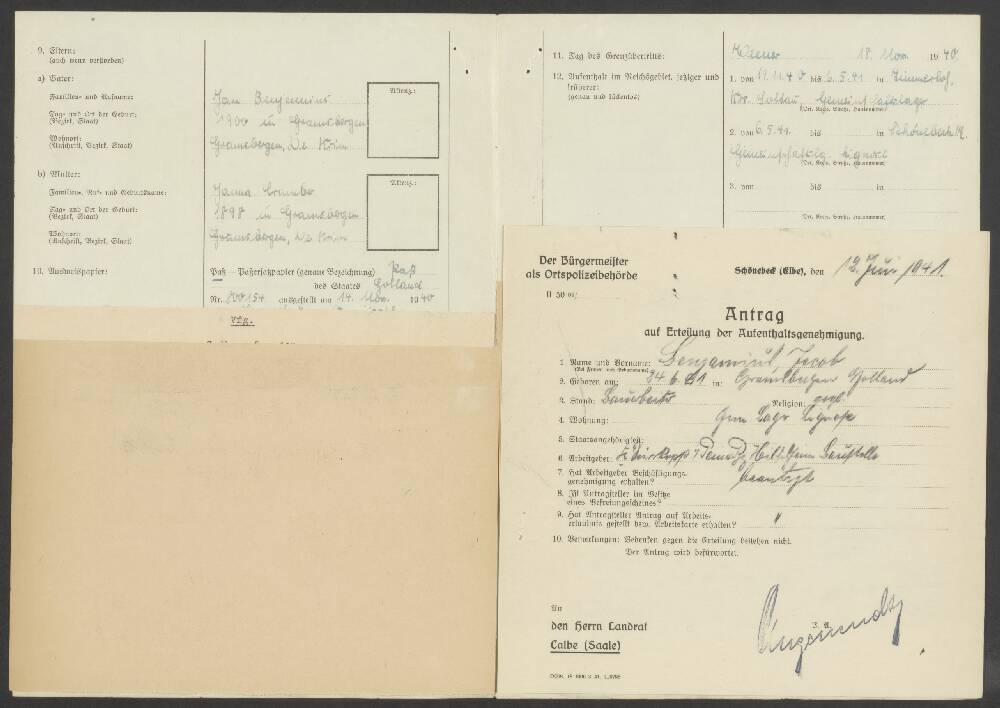 9. Eltern:
(auch wenn verstorben)
a) Vater:
Familien- und Rufname:
Jan Benjamins
Tag- und Ort der Geburt:
(Bezirk, Staat)
1900 in Gramsbergen
Wohnort:
(Anschrift, Bezirk, Staat)
Gramsbergen, De Krim
Aktenz.:
b) Mutter:
Familien-, Ruf- und Geburtsname:
Janna
Tag- und Ort der Geburt:
(Bezirk, Staat)
1898 in Gramsbergen
Wohnort:
(Anschrift, Bezirk, Staat)
Gramsbergen, De Krim
Aktenz.:
10. Ausweispapier:
Paß – Paßersatzpapier (genaue Bezeichnung) Paß
des Staates Holland
Nr. 800154 ausgestellt am 14. Nov. 1940
Vfg.
11. Tag des Grenzübertritts:
Weener 18. Nov. 1940
12. Aufenthalt im Reichsgebiet, jetziger und
früherer:
(genau und lückenlos)
1. von 19.11.40 bis 6.5.41 in
Kr. Soltau, Gemeinschaftslager
(Ort, Kreis, Straße, Hausnummer)
2. von 6.5.41. bis in Schönebeck
Gemeinschaftslg. Lignose
(Ort, Kreis, Straße, Hausnummer)
3. von bis in
(Ort, Kreis, Straße, Hausnummer)
Der Bürgermeister
als Ortspolizeibehörde
II 50
Schönebeck (Elbe), den 12. Juni 1941.
Antrag
auf Erteilung der Aufenthaltsgenehmigung.
1. Name und Vorname: Benjamins, Jacob
(Bei Frauen auch Geburtsname)
2. Geboren am: 24.6.21 in: Gramsbergen Holland
3. Stand: Bauarbeiter Religion: evgl.
4. Wohnung: Gem Lager Lignose
5. Staatsangehörigkeit:
6. Arbeitgeber: Baustelle
7. Hat Arbeitgeber Beschäftigungs-
genehmigung erhalten? beantragt
8. Ist Antragsteller im Besitze
eines Befreiungsscheines?
9. Hat Antragsteller Antrag auf Arbeits-
erlaubnis gestellt bzw. Arbeitskarte erhalten?
10. Bemerkungen: Bedenken gegen die Erteilung bestehen nicht.
Der Antrag wird befürwortet.
An
den Herrn Landrat
Calbe (Saale)
I. A.